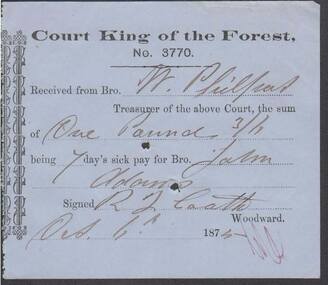 Court King of the Forest,
No. 3770.
Received from Bro. W. Philpot
Treasurer of the above Court, the sum
of One Pound 3/1
being 7 day's sick pay for Bro. John
Adams
Signed R J
Woodward.
Oct. 6th 187